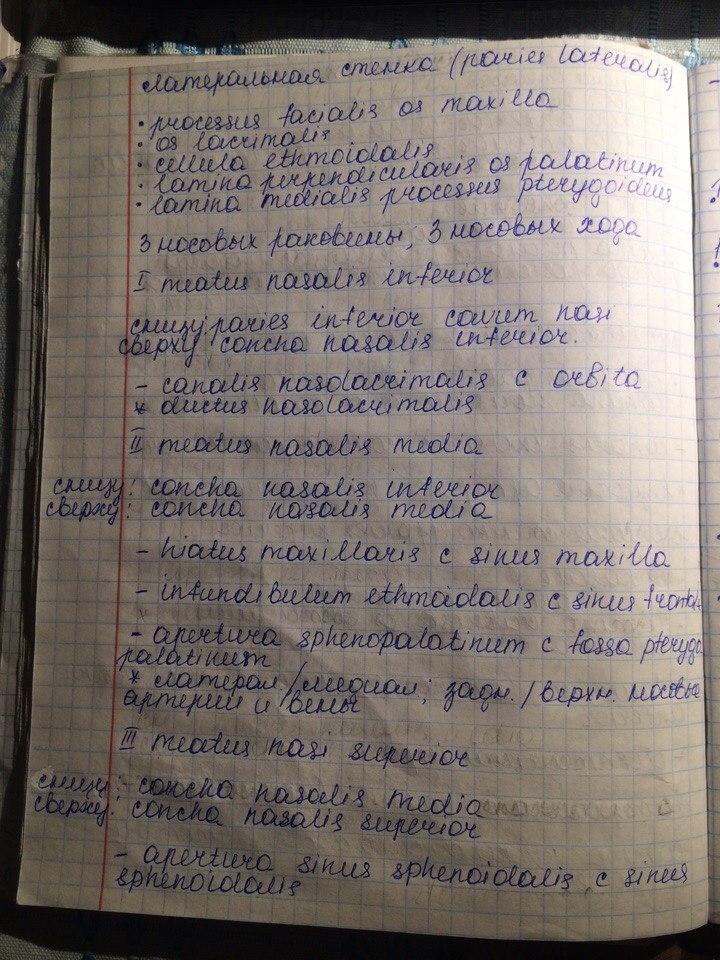 латеральная стенка (paries lateralis)
• processus facialis os maxilla
• os lacrimalis
• cellula ethmoidalis
• lamina perpendicularis os palatinum
• lamina medialis processus pterygoideus
3 носовых раковины; 3 носовых хода
I meatus nasalis inferior
снизу: paries inferior cavum nasi
сверху concha nasalis inferior.
- canalis nasolacrimalis с orbita
* ductus nasolacrimalis
II meatus nasalis media
снизу: concha nasalis inferior
сверху: concha nasalis media
- hiatus maxillaris с sinus maxilla
- infundibulum ethmoidalis с sinus frontal
- apertura sphenopalatinum с fossa pterygo
palatinum
* латерал./медиал; задн./верхн. носовые
артерии и вены
III meatus nasi superior
снизу: - concha nasalis media
сверху: concha nasalis superior
- apertura sinus sphenoidalis с sinus
sphenoidalis